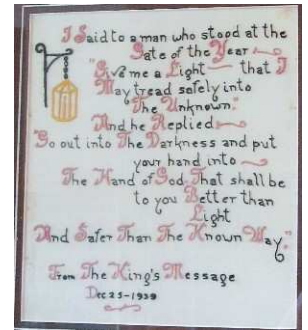 I Said to a man who stood at the
Gate of the Year
"Give me a Light that I
May tread safely into
The Unknown."
And he Replied
"Go out into The Darkness and put
your hand into
The Hand of God That shall be
to you Better than
Light
And Safer Than The Known Way."
From The King's Message
Dec 25-1939